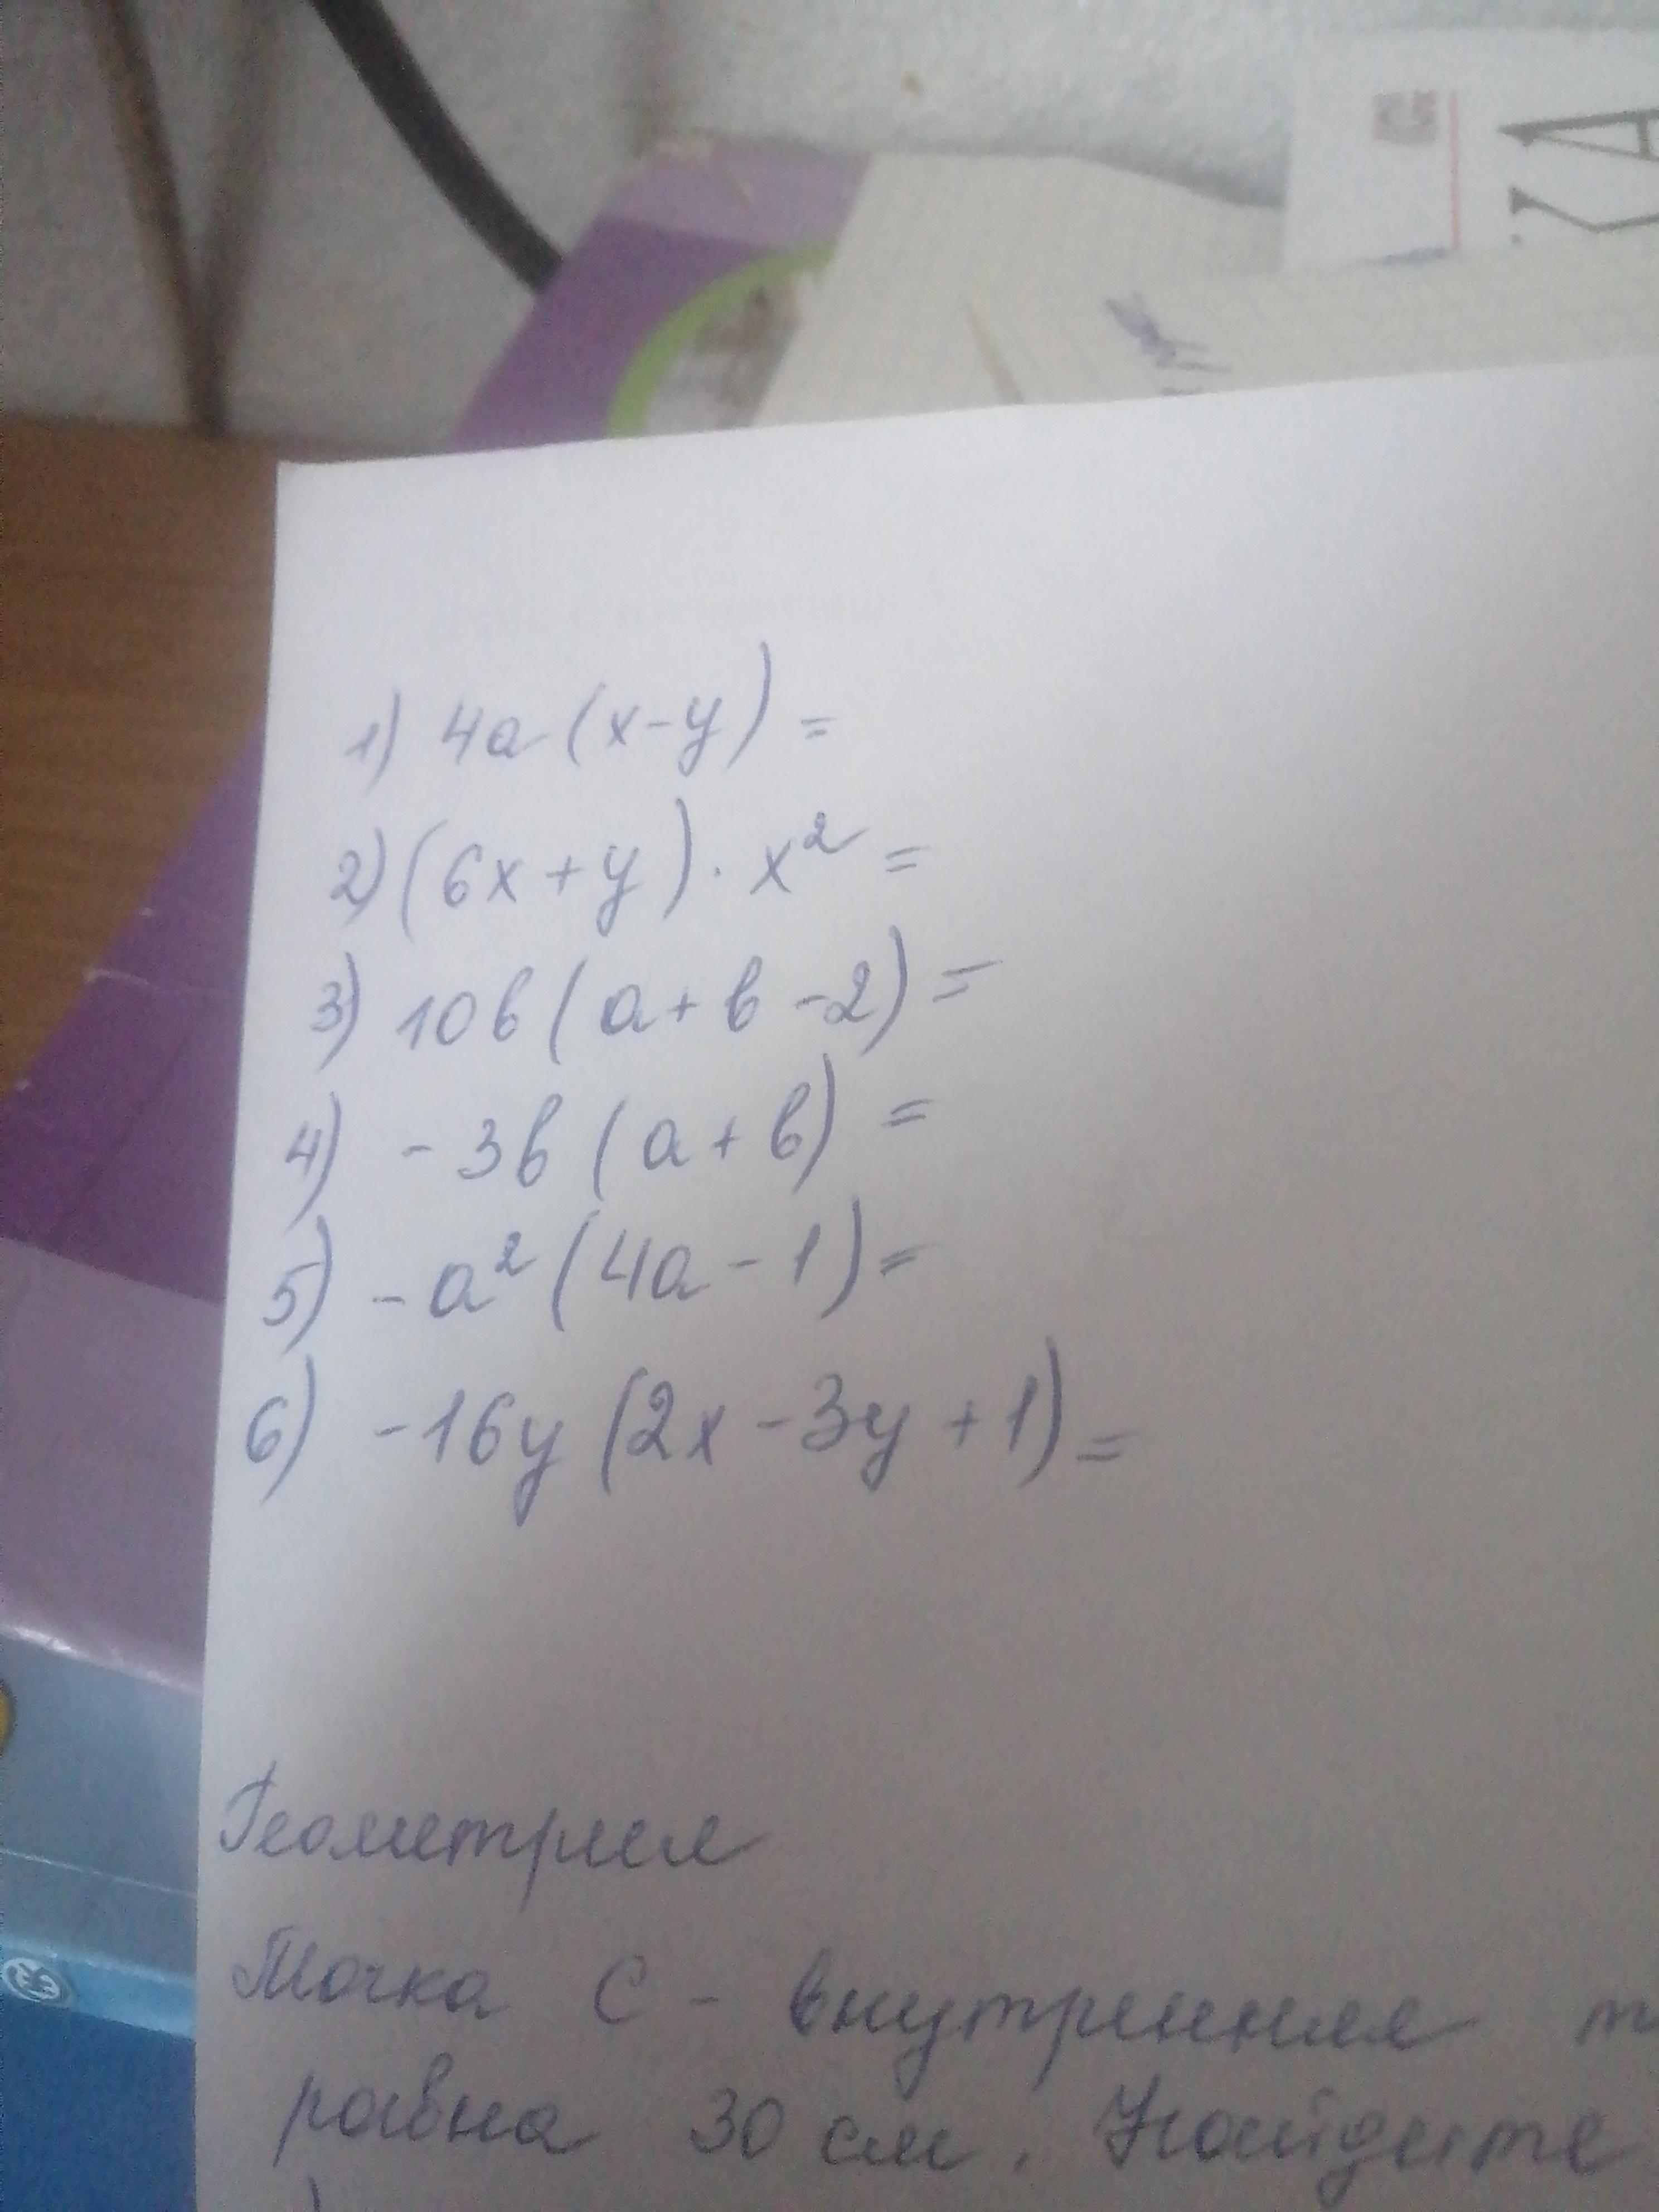 1) 4a(x-y)=
2) (6x+y)·x²=
3) 10b(a+b-2)=
4) -3b(a+b)=
5) -a²(4a-1)=
6) -16y(2x-3y+1)=
Геометрия
Точка C - внутренняя
равна 30 см. Найдите